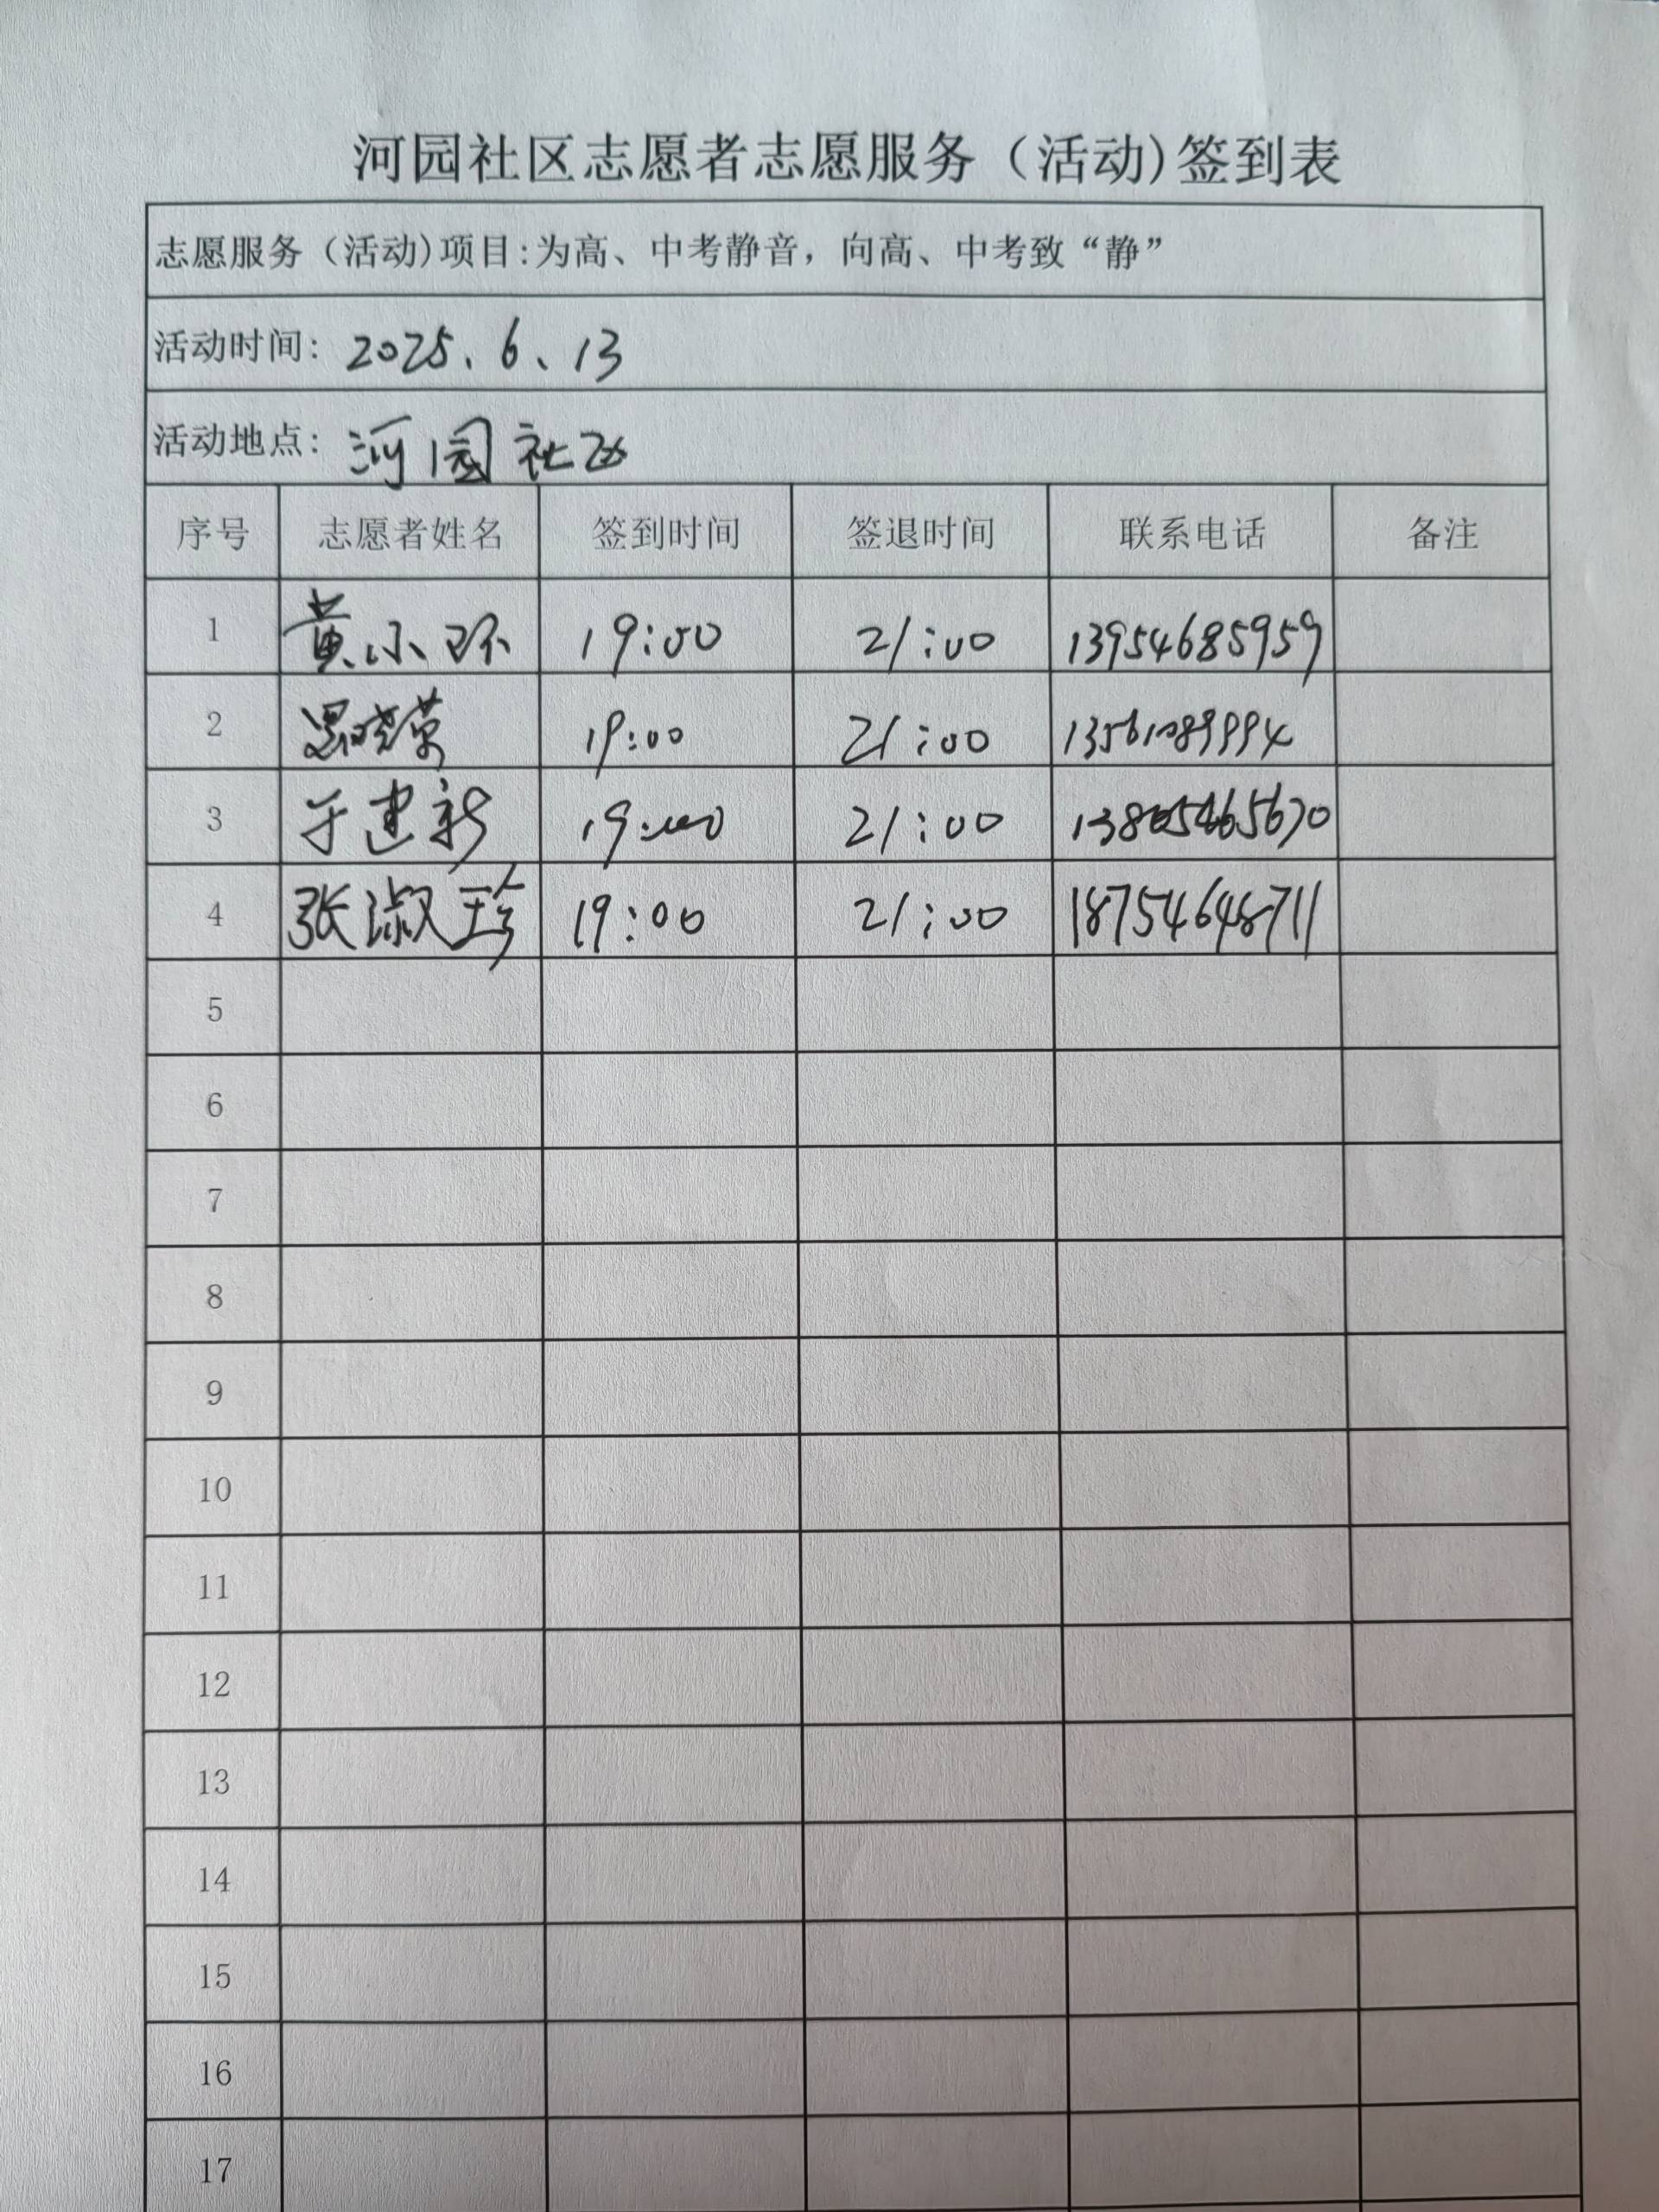 河园社区志愿者志愿服务（活动)签到表
志愿服务（活动)项目:为高、中考静音，向高、中考致“静”
活动时间: 2025.6、13
活动地点: 河园社区
序号 志愿者姓名 签到时间 签退时间 联系电话 备注
1 黄小环 19:00 21:00 13954685959
2 19:00 21:00 13561089994
3 于建新 19:00 21:00 13805465670
4 张淑珍 19:00 21:00 18754648711
5
6
7
8
9
10
11
12
13
14
15
16
17